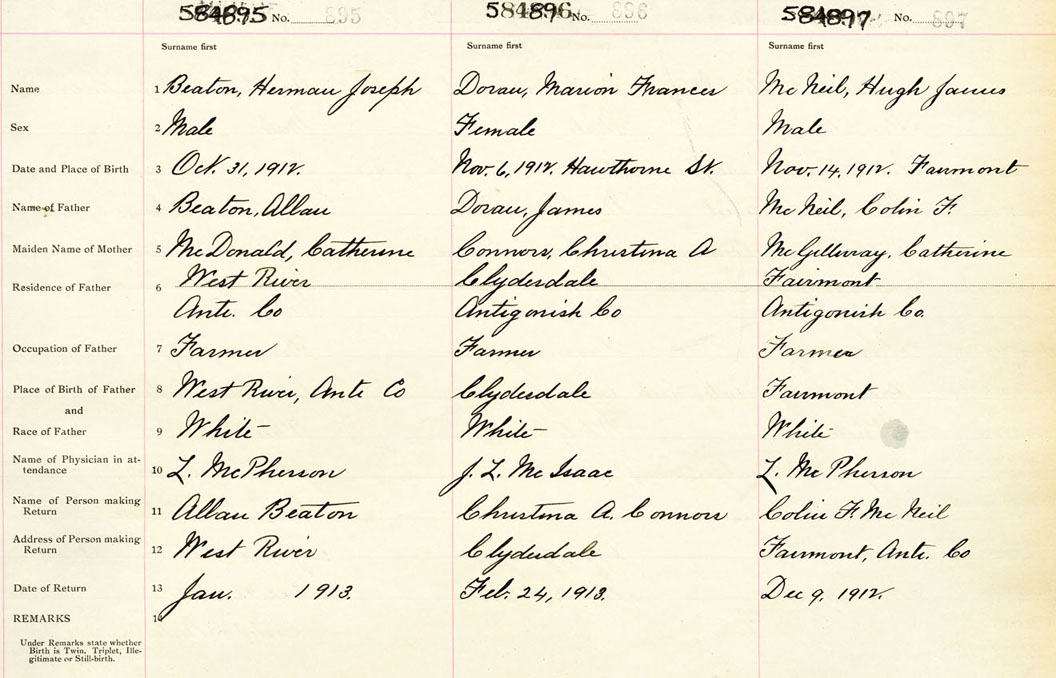 584895 No. 895 584896 No. 896 584897 No. 897
Surname first Surname first Surname first
Name 1 Beaton, Herman Joseph Doran, Marion Frances McNeil, Hugh James
Sex 2 Male Female Male
Date and Place of Birth 3 Oct. 31, 1912. Nov. 6, 1912. Hawthorne St. Nov. 14, 1912. Fairmont
Name of Father 4 Beaton, Allan Doran, James McNeil, Colin F.
Maiden Name of Mother 5 McDonald, Catherine Connors, Christina A McGillivray, Catherine
Residence of Father 6 West River Clydesdale Fairmont
Ant. Co Antigonish Co Antigonish Co.
Occupation of Father 7 Farmer Farmer Farmer
Place of Birth of Father 8 West River, Ant. Co Clydesdale Fairmont
and
Race of Father 9 White White White
Name of Physician in at-
tendance 10 L. McPherson J. L. McIsaac L. McPherson
Name of Person making
Return 11 Allan Beaton Christina A. Connors Colin F. McNeil
Address of Person making
Return 12 West River Clydesdale Fairmont, Ant. Co
Date of Return 13 Jan. 1913. Feb. 24, 1913. Dec 9, 1912.
REMARKS 14
Under Remarks state whether
Birth is Twin, Triplet, Ille-
gitimate or Still-birth.